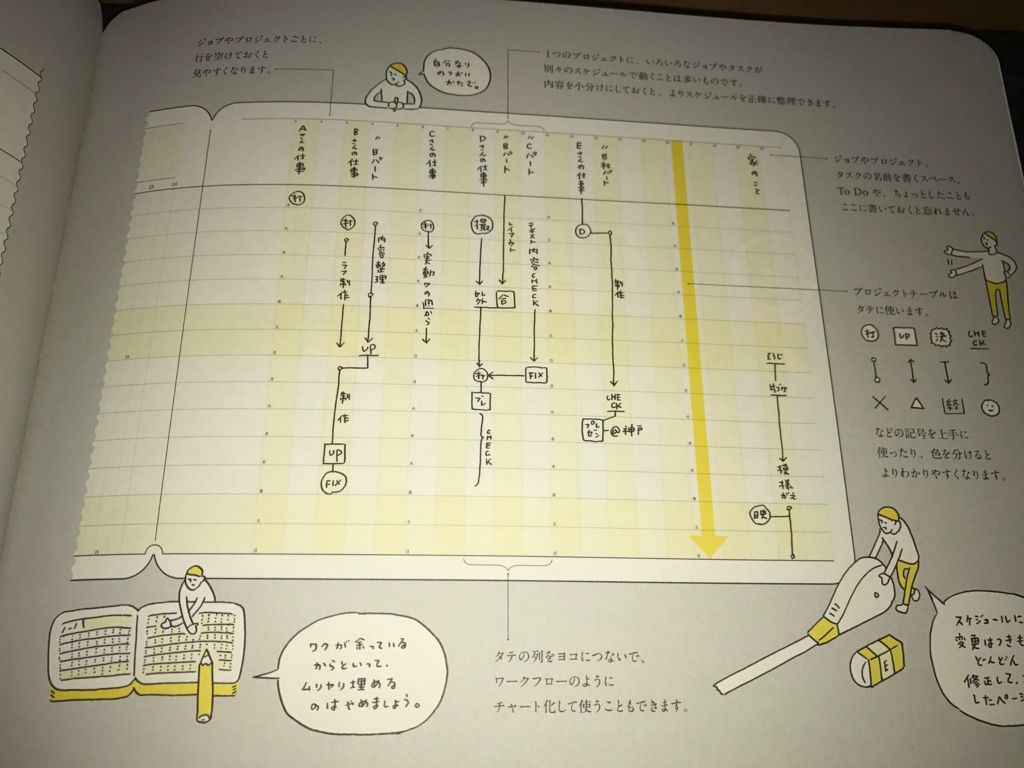 ジョブやプロジェクトごとに、
行を空けておくと
見やすくなります。
自分なり
のつかい
かたで。
1つのプロジェクトに、いろいろなジョブやタスクが
別々のスケジュールで動くことは多いものです。
内容を小分けにしておくと、よりスケジュールを正確に整理できます。
Aさんの仕事
Bさんの仕事
〃Bパート
Cさんの仕事
Dさんの仕事
〃Bパート
〃Cパート
Eさんの仕事
〃B社パート
家のこと
23
24
打
打
ラフ制作
内容整理
UP
制作
UP
FIX
打
実動ワク図から
撮
セレクト
打
プレ
CHECK
レイアウト
合
テキスト内容CHECK
FIX
D
制作
CHECK
プレゼン
@神戸
そうじ
片づけ
模様がえ
映
ジョブやプロジェクト、
タスクの名前を書くスペース。
To Doや、ちょっとしたことも
ここに書いておくと忘れません。
プロジェクトテーブルは
タテに使います。
打 UP 決 CHECK
終
などの記号を上手に
使ったり、色を分けると
よりわかりやすくなります。
ワクが余っている
からといって、
ムリヤリ埋める
のはやめましょう。
タテの列をヨコにつないで、
ワークフローのように
チャート化して使うこともできます。
E
スケジュールに
変更はつきも
どんどん
修正して、
したページ